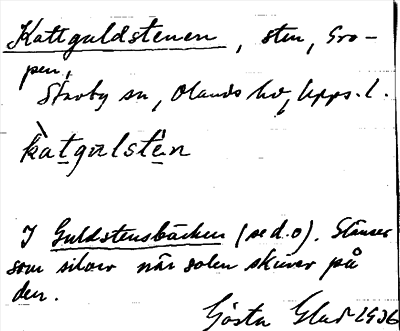 Kattguldstenen, sten, Gro-
pen,
Stavby sn, Olands hd, Upps. l.
kàtgulstèn
I Guldstensbäcken (se d.o). Glänser
som silver när solen skiner på
den.
Gösta Glad 1936